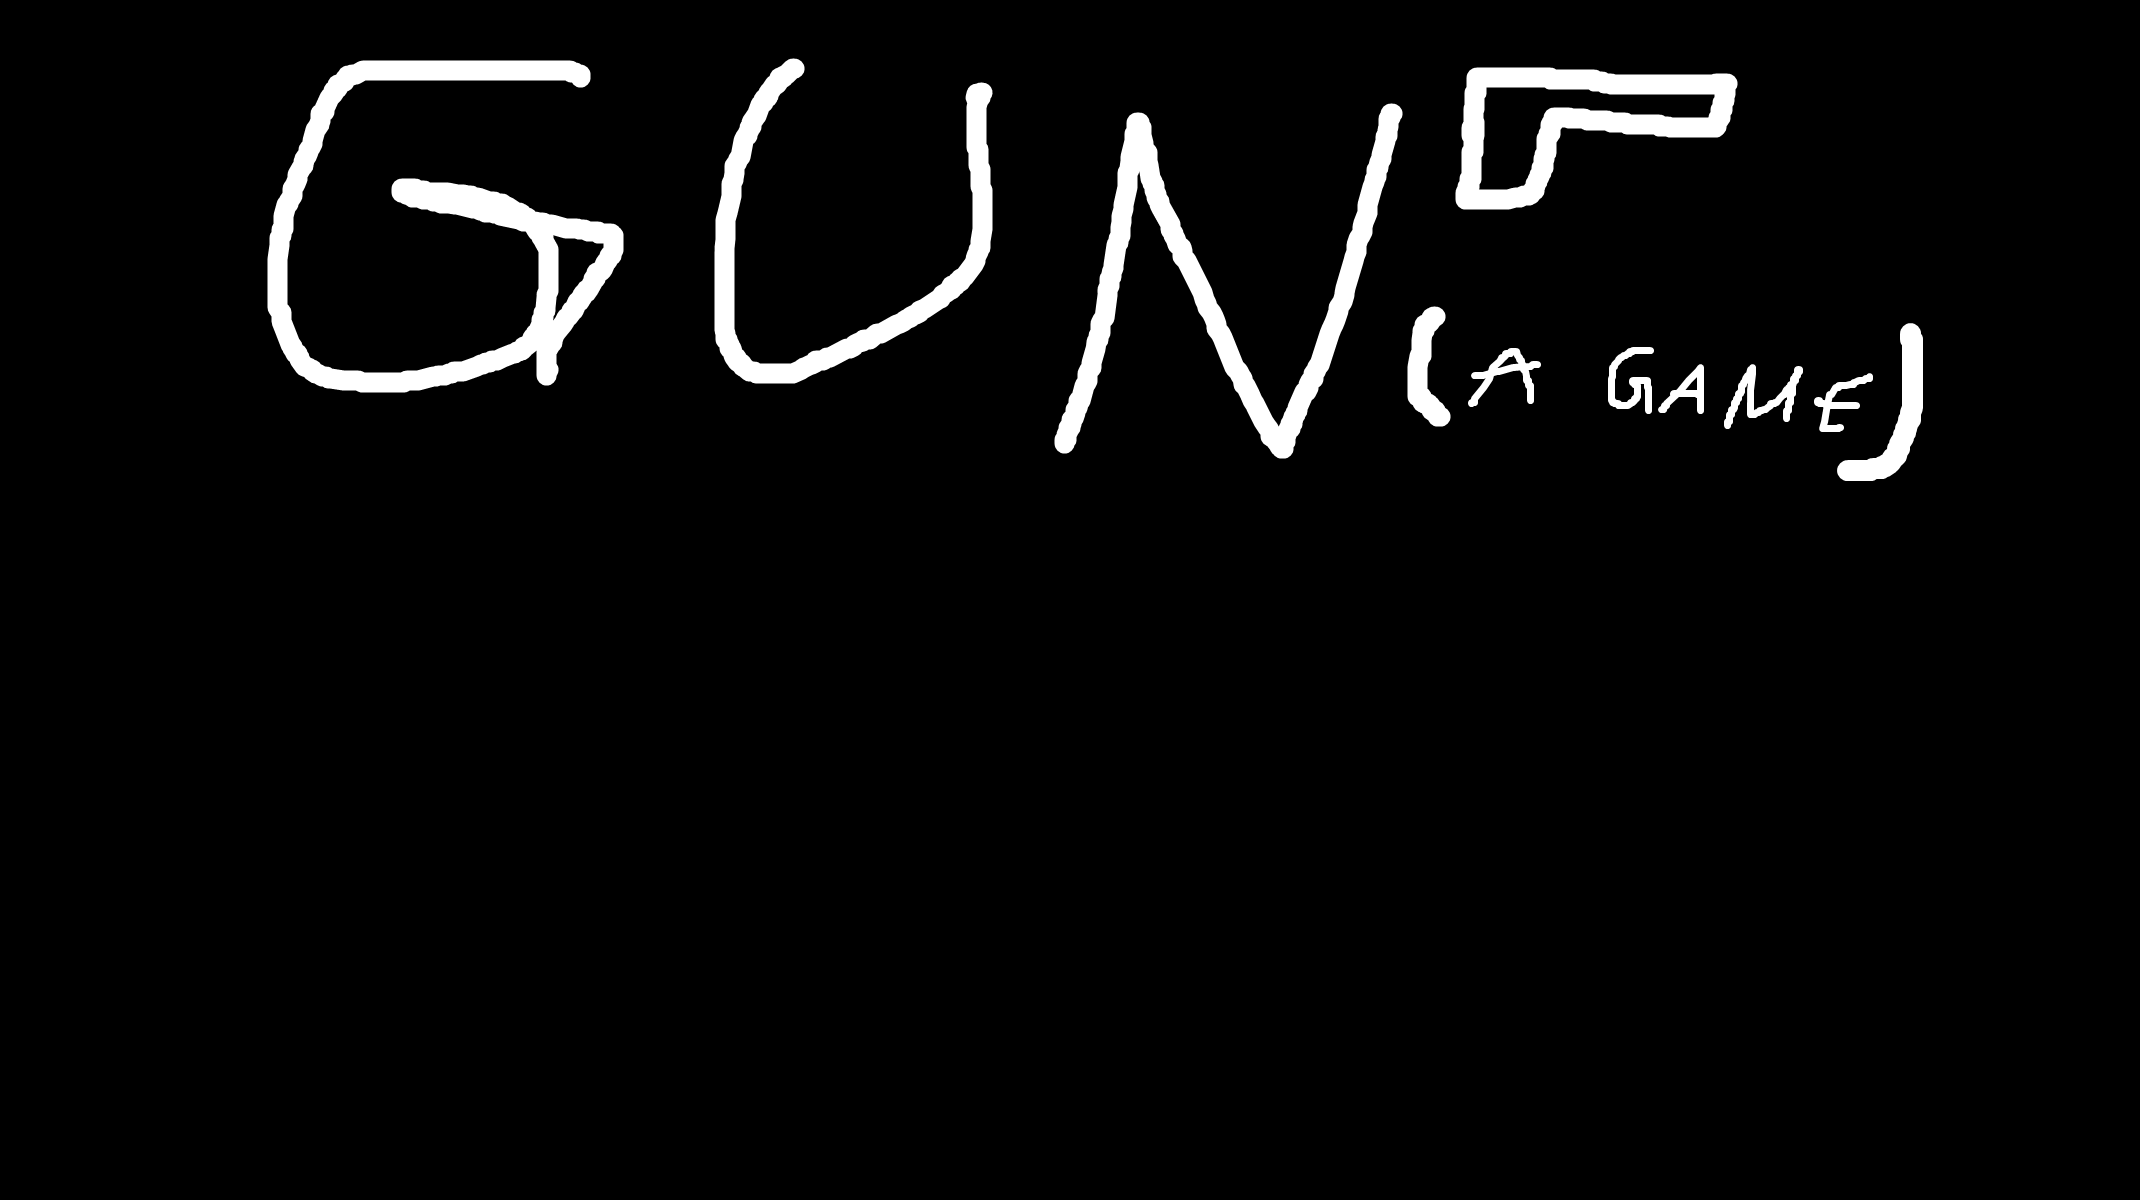 GUN
(A GAME)